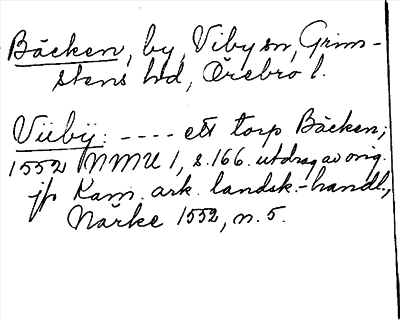 Bäcken, by, Viby sn, Grim-
stens hd, Örebro l.
Viibÿ: ---- ett torp Bäcken,
1552 NMU 1, s. 166. utdrag av orig.
jfr Kam. ark. landsk.-handl.,
Närke 1552, n. 5.